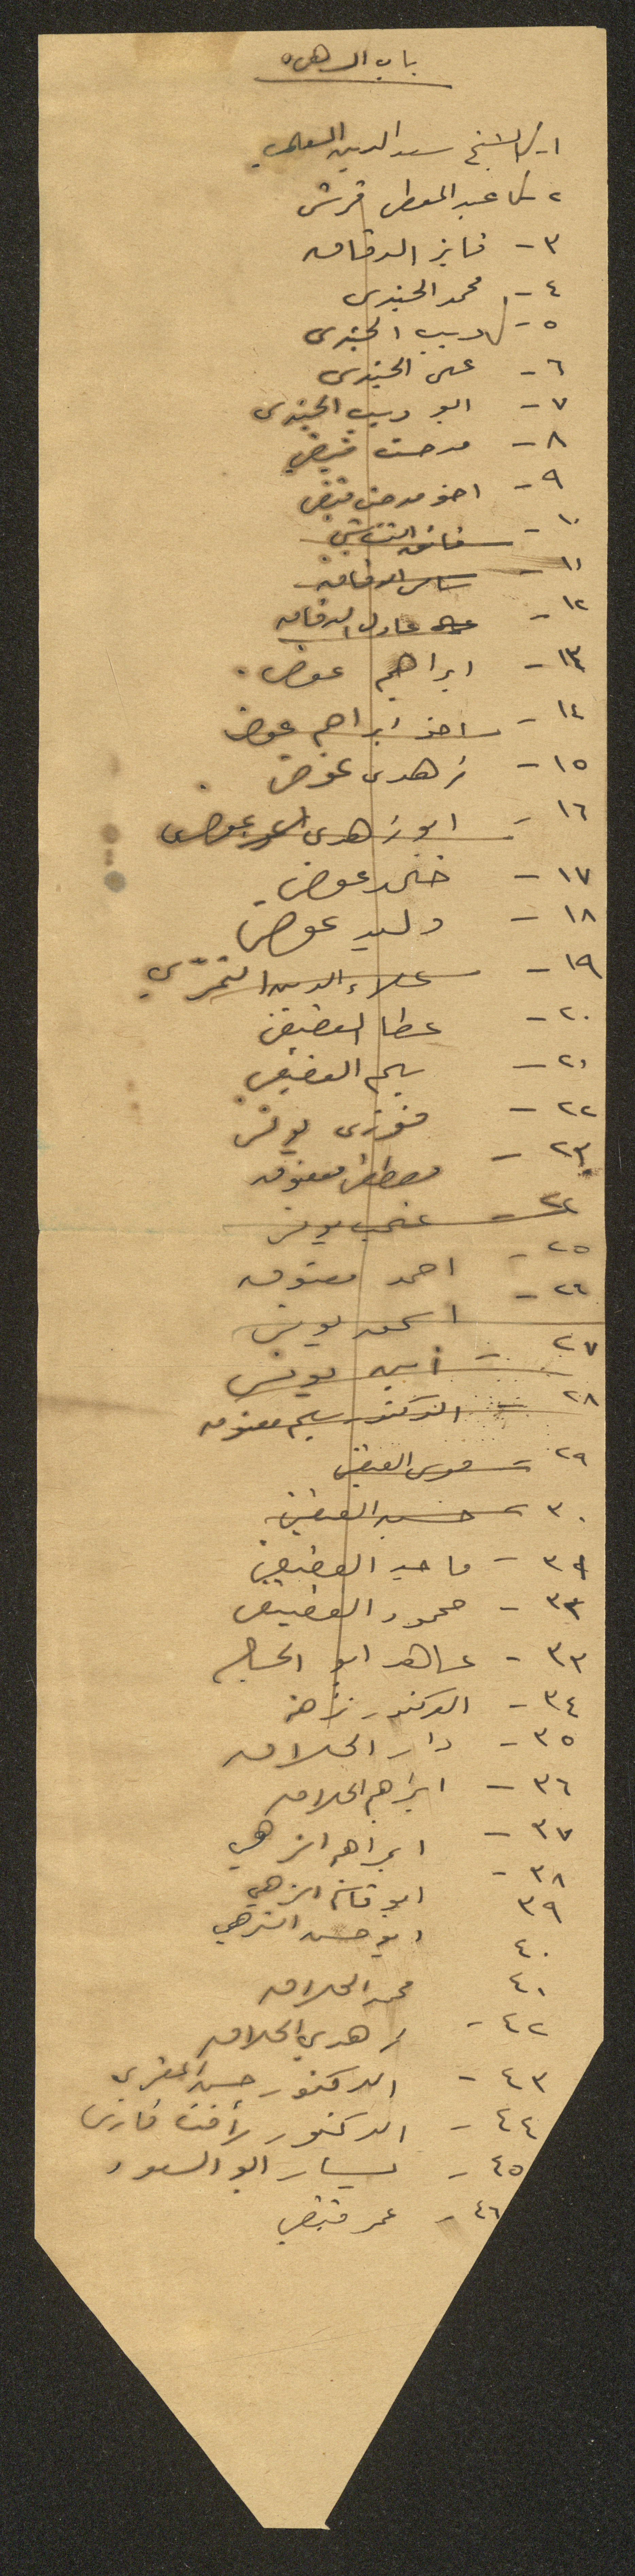 باب الساهره
١- الشيخ سعد الدين العلمي
٢- عبد المعطي قرش
٣- فايز الدقاق
٤- محمد الجندي
٥- اديب الجندي
٦- علي الجندي
٧- ابو ديب الجندي
٨- مدحت قبضي
٩- اخو مدحت قبضي
١٠- فائق النشاشيبي
١١- سامي الدقاق
١٢- عادل الدقاق
١٣- ابراهيم عوض
١٤- اخو ابراهيم عوض
١٥- زهدي عوض
١٦- ابو زهدي عوض
١٧- خالد عوض
١٨- وليد عوض
١٩- علاء الدين النمري
٢٠- عطا العفيفي
٢١- سليم العفيفي
٢٢- فوزي يونس
٢٣- مصطفى معتوق
٢٤- يونس
٢٥- احمد معتوق
٢٦- اسحق يونس
٢٧- امين يونس
٢٨- الدكتور سليم معتوق
٢٩- موسى العفيفي
٣٠- حسن العفيفي
٣١- ماجد العفيفي
٣٢- محمود العفيفي
٣٣- عاهد ابو الحاج
٣٤- الدكتور نزهة
٣٥- دار الحلاق
٣٦- ابراهيم الحلاق
٣٧- ابراهيم النزهي
٣٨-
٣٩ ابو قاسم النزهي
٤٠ ابو حسن النزهي
٤١ محمد الحلاق
٤٢- زهدي الحلاق
٤٣- الدكتور حسن المغربي
٤٤- الدكتور رأفت فارس
٤٥- يسار ابو السعود
٤٦- عمر قبضي